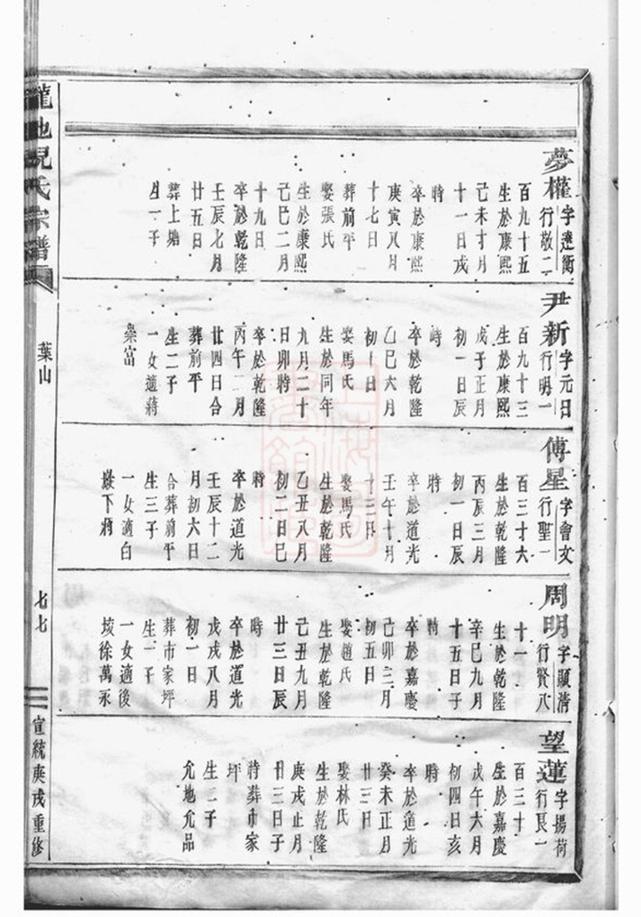 夢權
字逵衡
行敬二
百九十五
生於康熙
己未十月
十一日戌
時
卒於康熙
庚寅八月
十七日
葬前平
娶張氏
生於康熙
己巳二月
十九日
卒於乾隆
壬辰七月
廿五日
葬上塘
生一子
尹新
字元日
行明一
百九十三
生於康熙
戊子正月
初一日辰
時
卒於乾隆
乙巳六月
初一日
娶馬氏
生於同年
九月二十
日卯時
卒於乾隆
丙午二月
廿四日合
葬前平
生二子
一女適蔣
棠富
傅星
字會文
行聖一
百三十六
生於乾隆
丙辰三月
初一日辰
時
卒於道光
壬午十月
十三日
娶馬氏
生於乾隆
乙丑八月
初二日巳
時
卒於道光
壬辰十二
月初六日
合葬前平
生三子
一女適白
下蔣
周明
字顯清
行賢八
十一
生於乾隆
辛巳九月
十五日子
時
卒於嘉慶
己卯三月
初五日
娶趙氏
生於乾隆
己丑九月
廿三日辰
時
卒於道光
戊戌八月
初一日
葬市家坪
生一子
一女適後
垓徐萬永
望蓮
字揚荷
行艮一
百三十
生於嘉慶
戊午六月
初四日亥
時
卒於道光
癸未正月
廿三日
娶林氏
生於乾隆
庚戌正月
廿三日子
時葬市家
坪
生二子
允地允品
龍池兒氏宗譜
葉山
七七
宣統庚戌重修